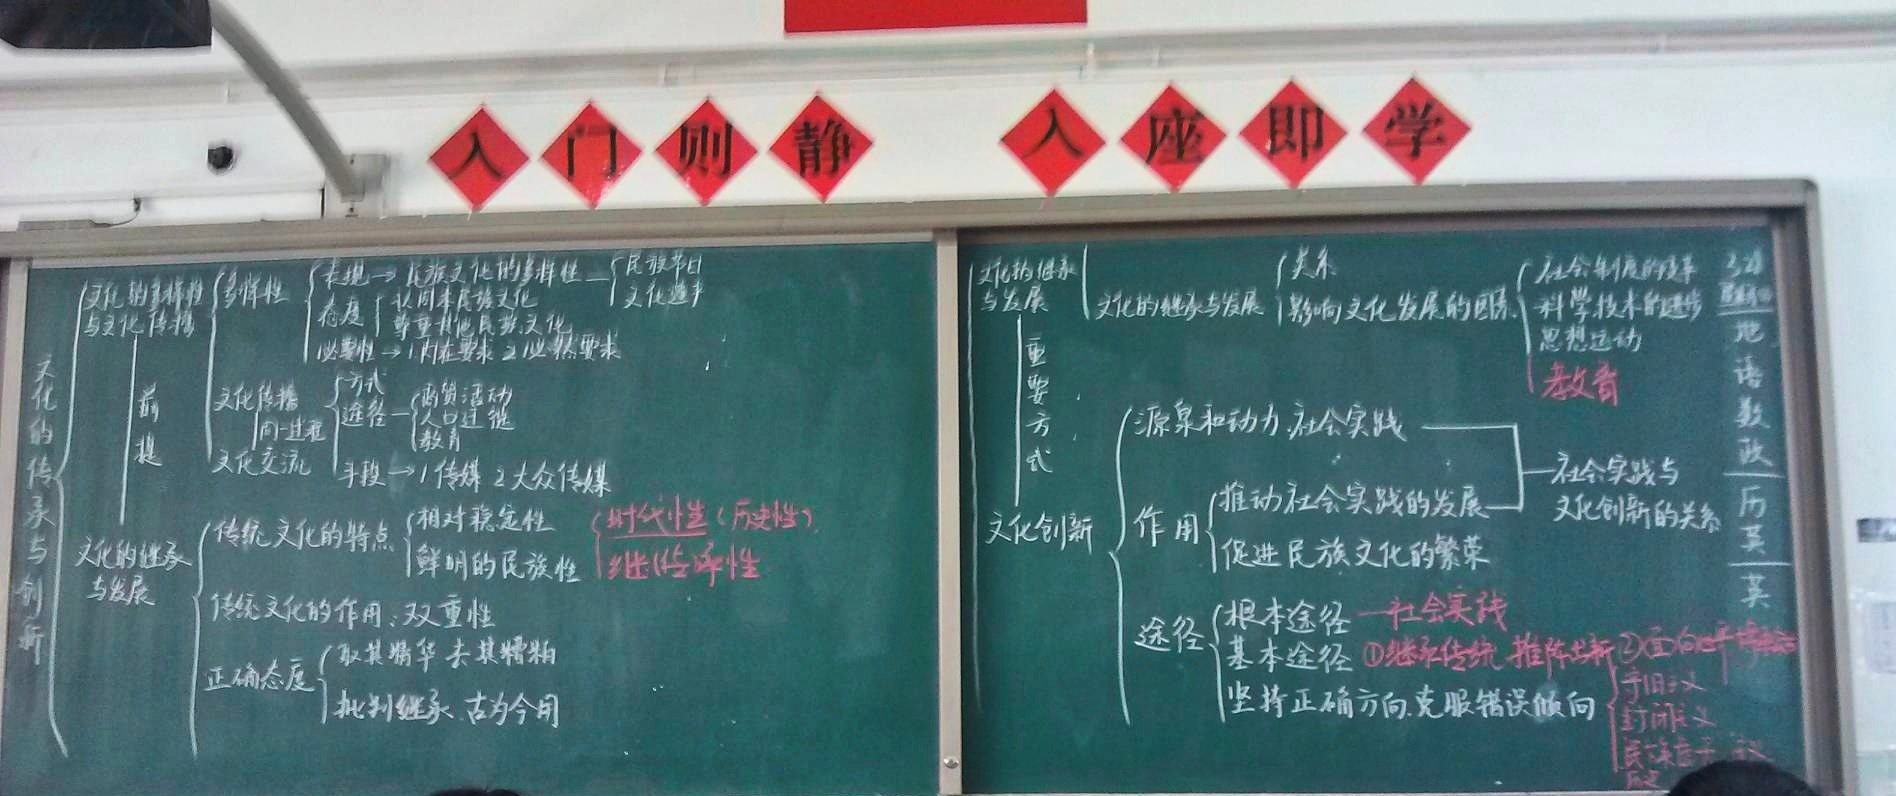 入门则静 入座即学
文化的传承与创新
文化的多样性
与文化传播
前提
文化的继承
与发展
多样性
表现→民族文化的多样性
民族节日
文化遗产
态度
认同本民族文化
尊重其他民族文化
必要性→1内在要求 2必然要求
文化传播
同一过程
文化交流
方式
途径
商贸活动
人口迁徙
教育
手段→1传媒 2大众传媒
传统文化的特点
相对稳定性
鲜明的民族性
时代性(历史性)
继(传)承性
传统文化的作用:双重性
正确态度
取其精华 去其糟粕
批判继承、古为今用
文化的继承
与发展
重要方式
文化创新
文化的继承与发展
关系
影响文化发展的因素
社会制度的变革
科学技术的进步
思想运动
教育
源泉和动力:社会实践
作用
推动社会实践的发展
促进民族文化的繁荣
社会实践与
文化创新的关系
途径
根本途径—社会实践
基本途径 ①继承传统 推陈出新 ②面向世界
坚持正确方向、克服错误倾向
守旧主义
封闭主义
民族虚无主义
历史
地
语
数
政
历
英
英